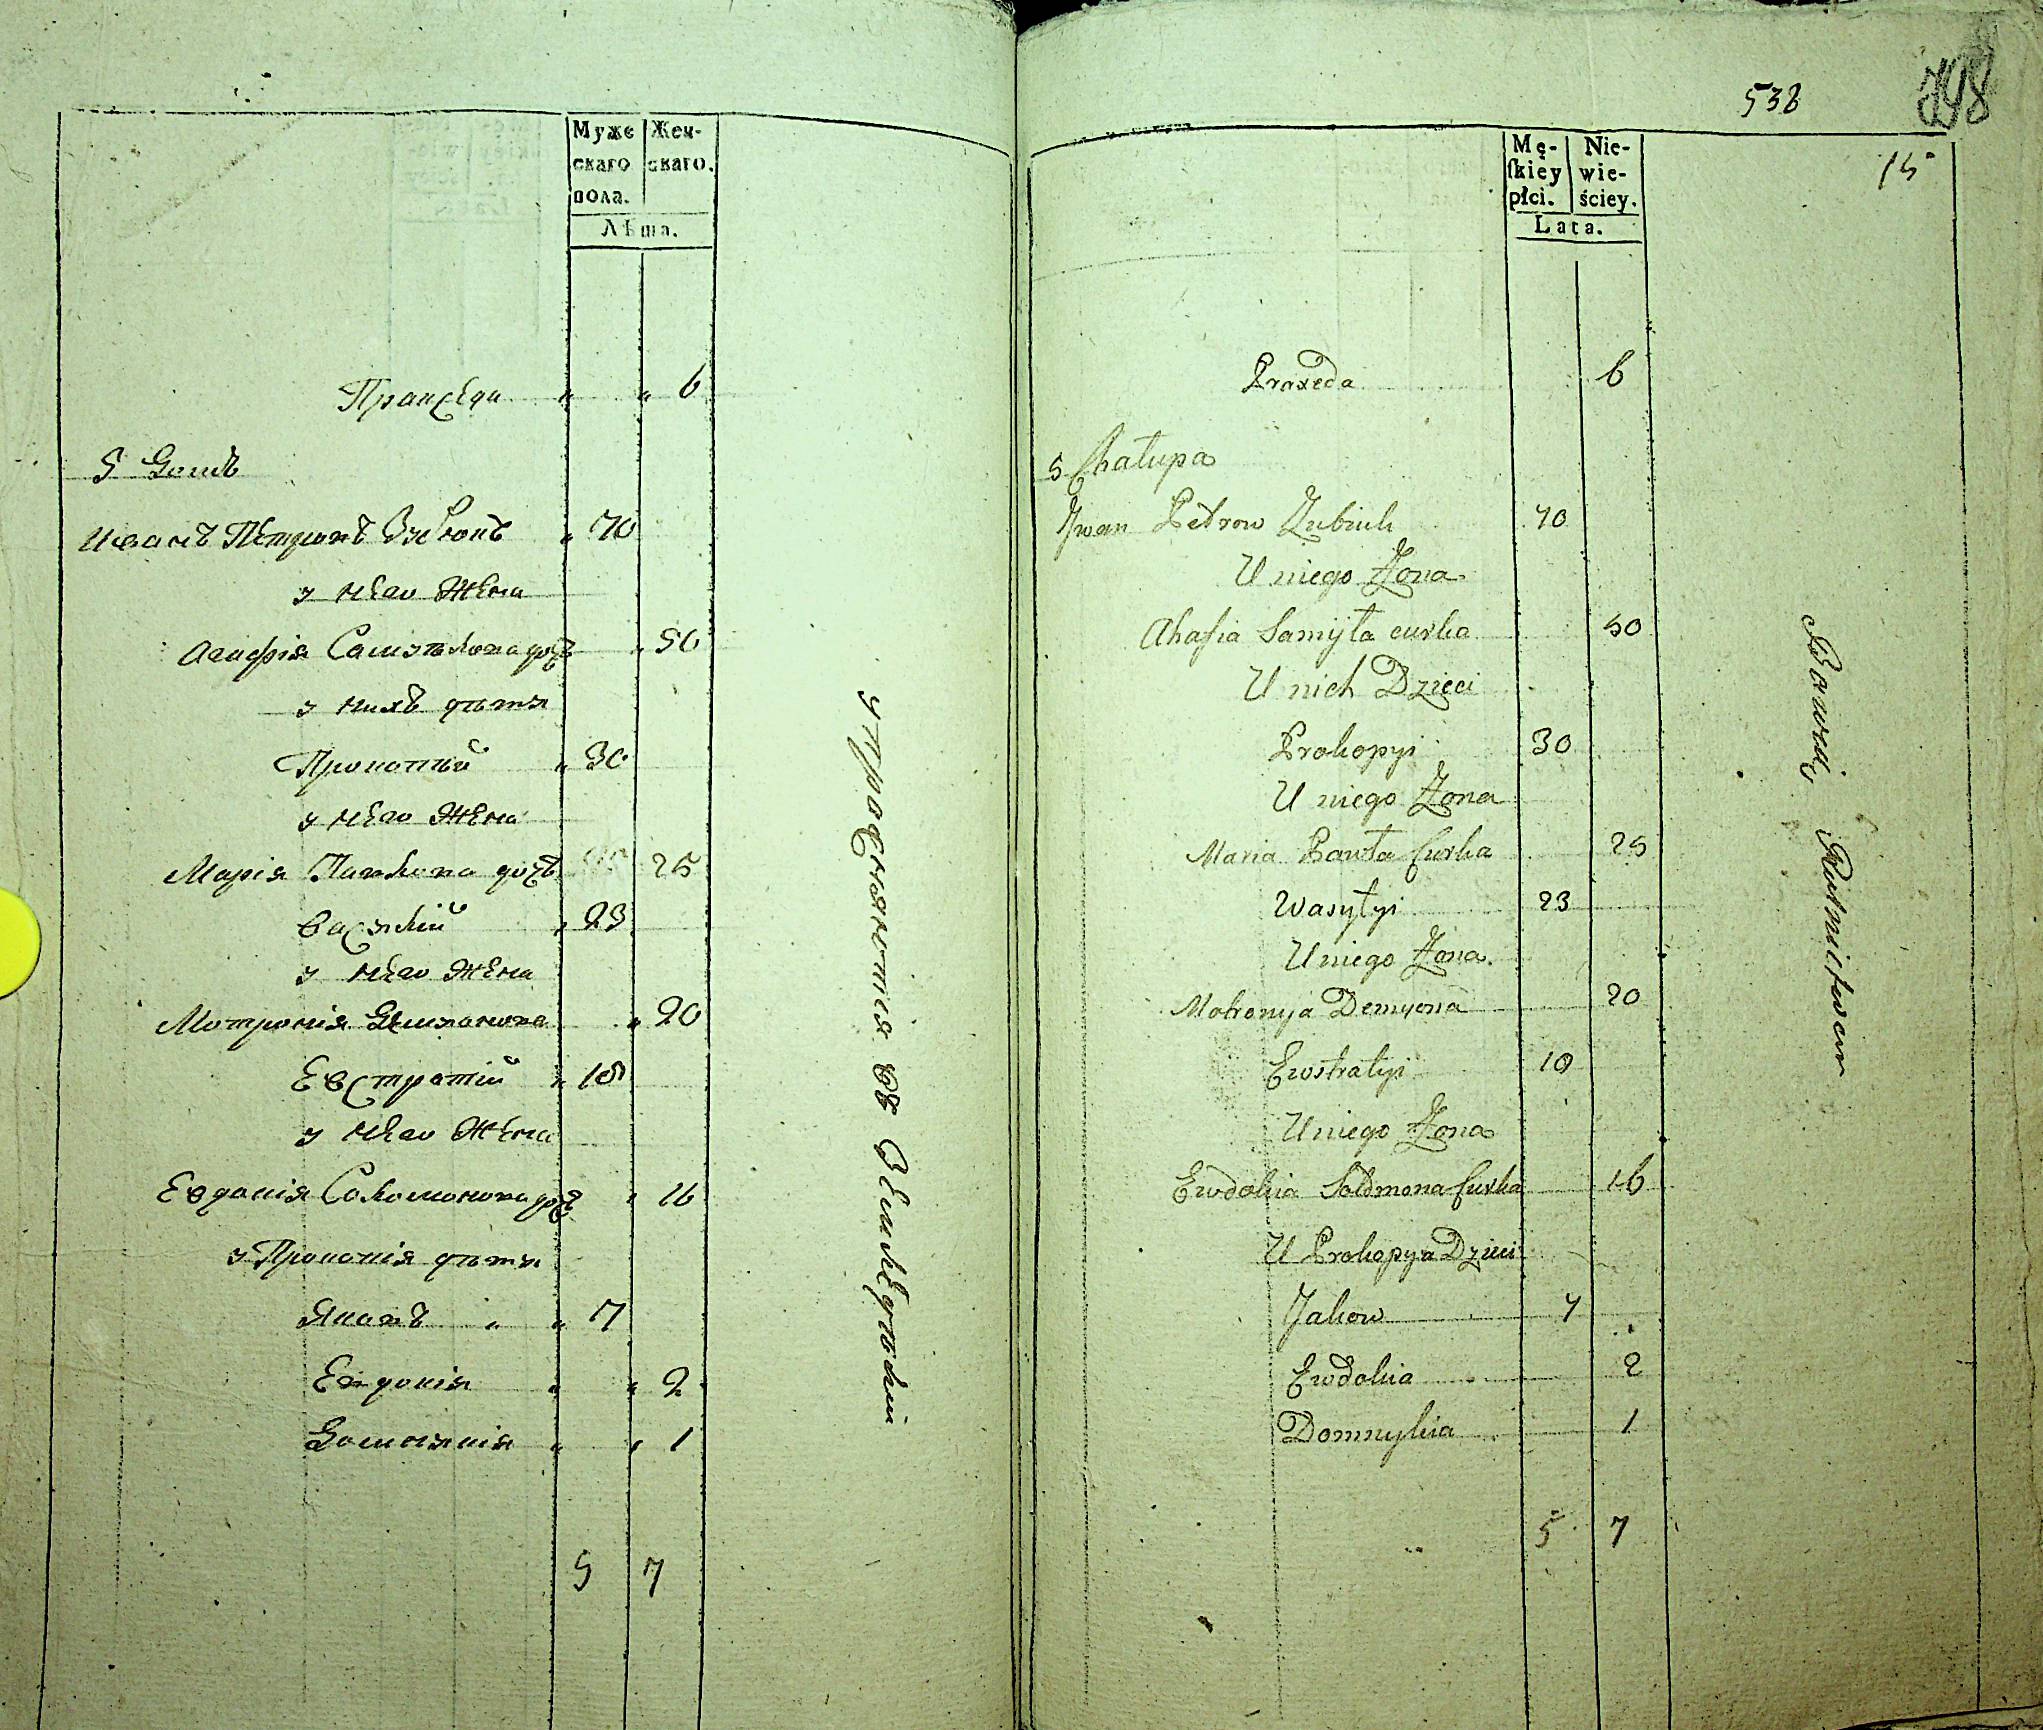 Муже
скаго
пола.
Жен-
скаго.
Лѣта.
Пракседа " " 6
5 Домъ
Иванъ Петровъ Зубюкъ " 70
у него Жена
Агафія Самойлова дочь " 50
у нихъ дѣти
Прокопій " 30
у него Жена
Марія Павлова дочь 25
Василій " 23
у него Жена
Мотронія Демянова " 20
Евстратій " 18
у него Жена
Евдокія Соломонова дочь " 16
у Прокопія дѣти
Яковъ " " 7
Евдокія " " 2
Домникія " " 1
5 7
упражняются въ Земледѣліи
538
798
15
Mę-
ſkiey
płci.
Nie-
wie-
ściey.
Lata.
Praxeda 6
5 Chałupa
Jwan Petrow Zubiuk 70
U niego Żona
Ahafia Samÿła curka 50
U nich Dzieci
Prokopyi 30
U niego Żona
Maria Pawła Curka 25
Wasyłyi 23
U niego Żona
Motronija Demyona 20
Ewstratyi 18
U niego Żona
Ewdokia Sołomona Curka 16
U Prokopya Dzieci
Jakow 7
Ewdokia 2
Domnykia 1
5 7
Bawią Rolnictwem